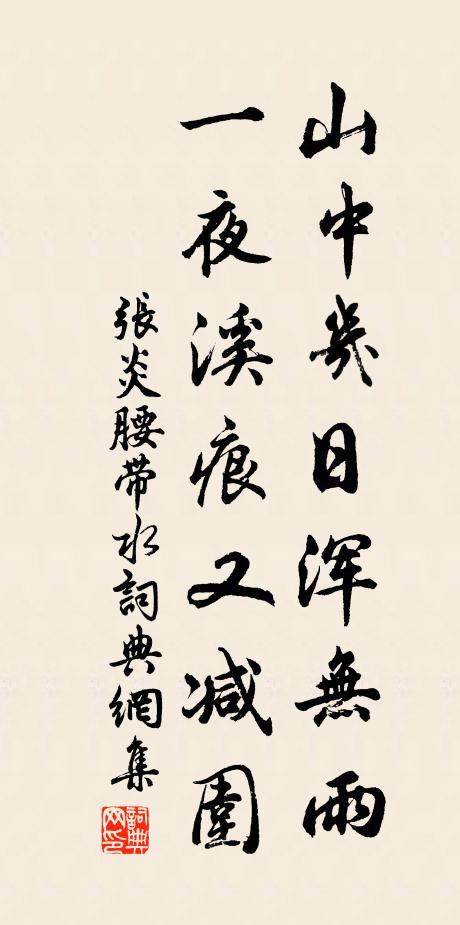 山中幾日浑無雨
一夜溪痕又減圍
張炎腰带水詞典網集
詞典网印